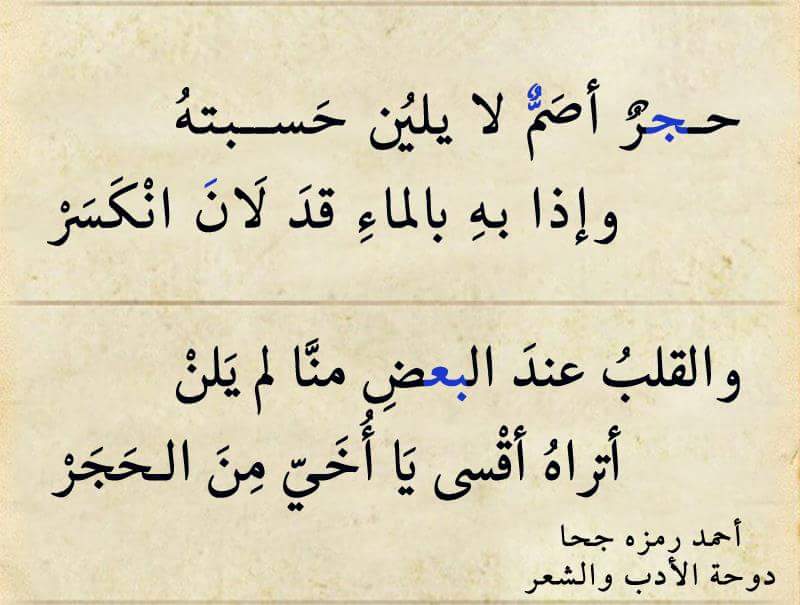 حـجرٌ أصَمٌّ لا يليُن حَســبتهُ
وإذا بهِ بالماءِ قدَ لَانَ انْكَسَرْ
والقلبُ عندَ البعضِ منَّا لم يَلنْ
أتراهُ أقْسى يَا أُخَيّ مِنَ الـحَجَرْ
أحمد رمزه جحا
دوحة الأدب والشعر